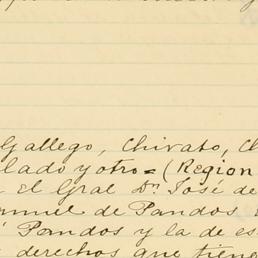 Gallego, Chivato, Ch
lado y otro = (Region
El Gral Dn José de
de Pandos
Pandos y la de es
derechos que tiene